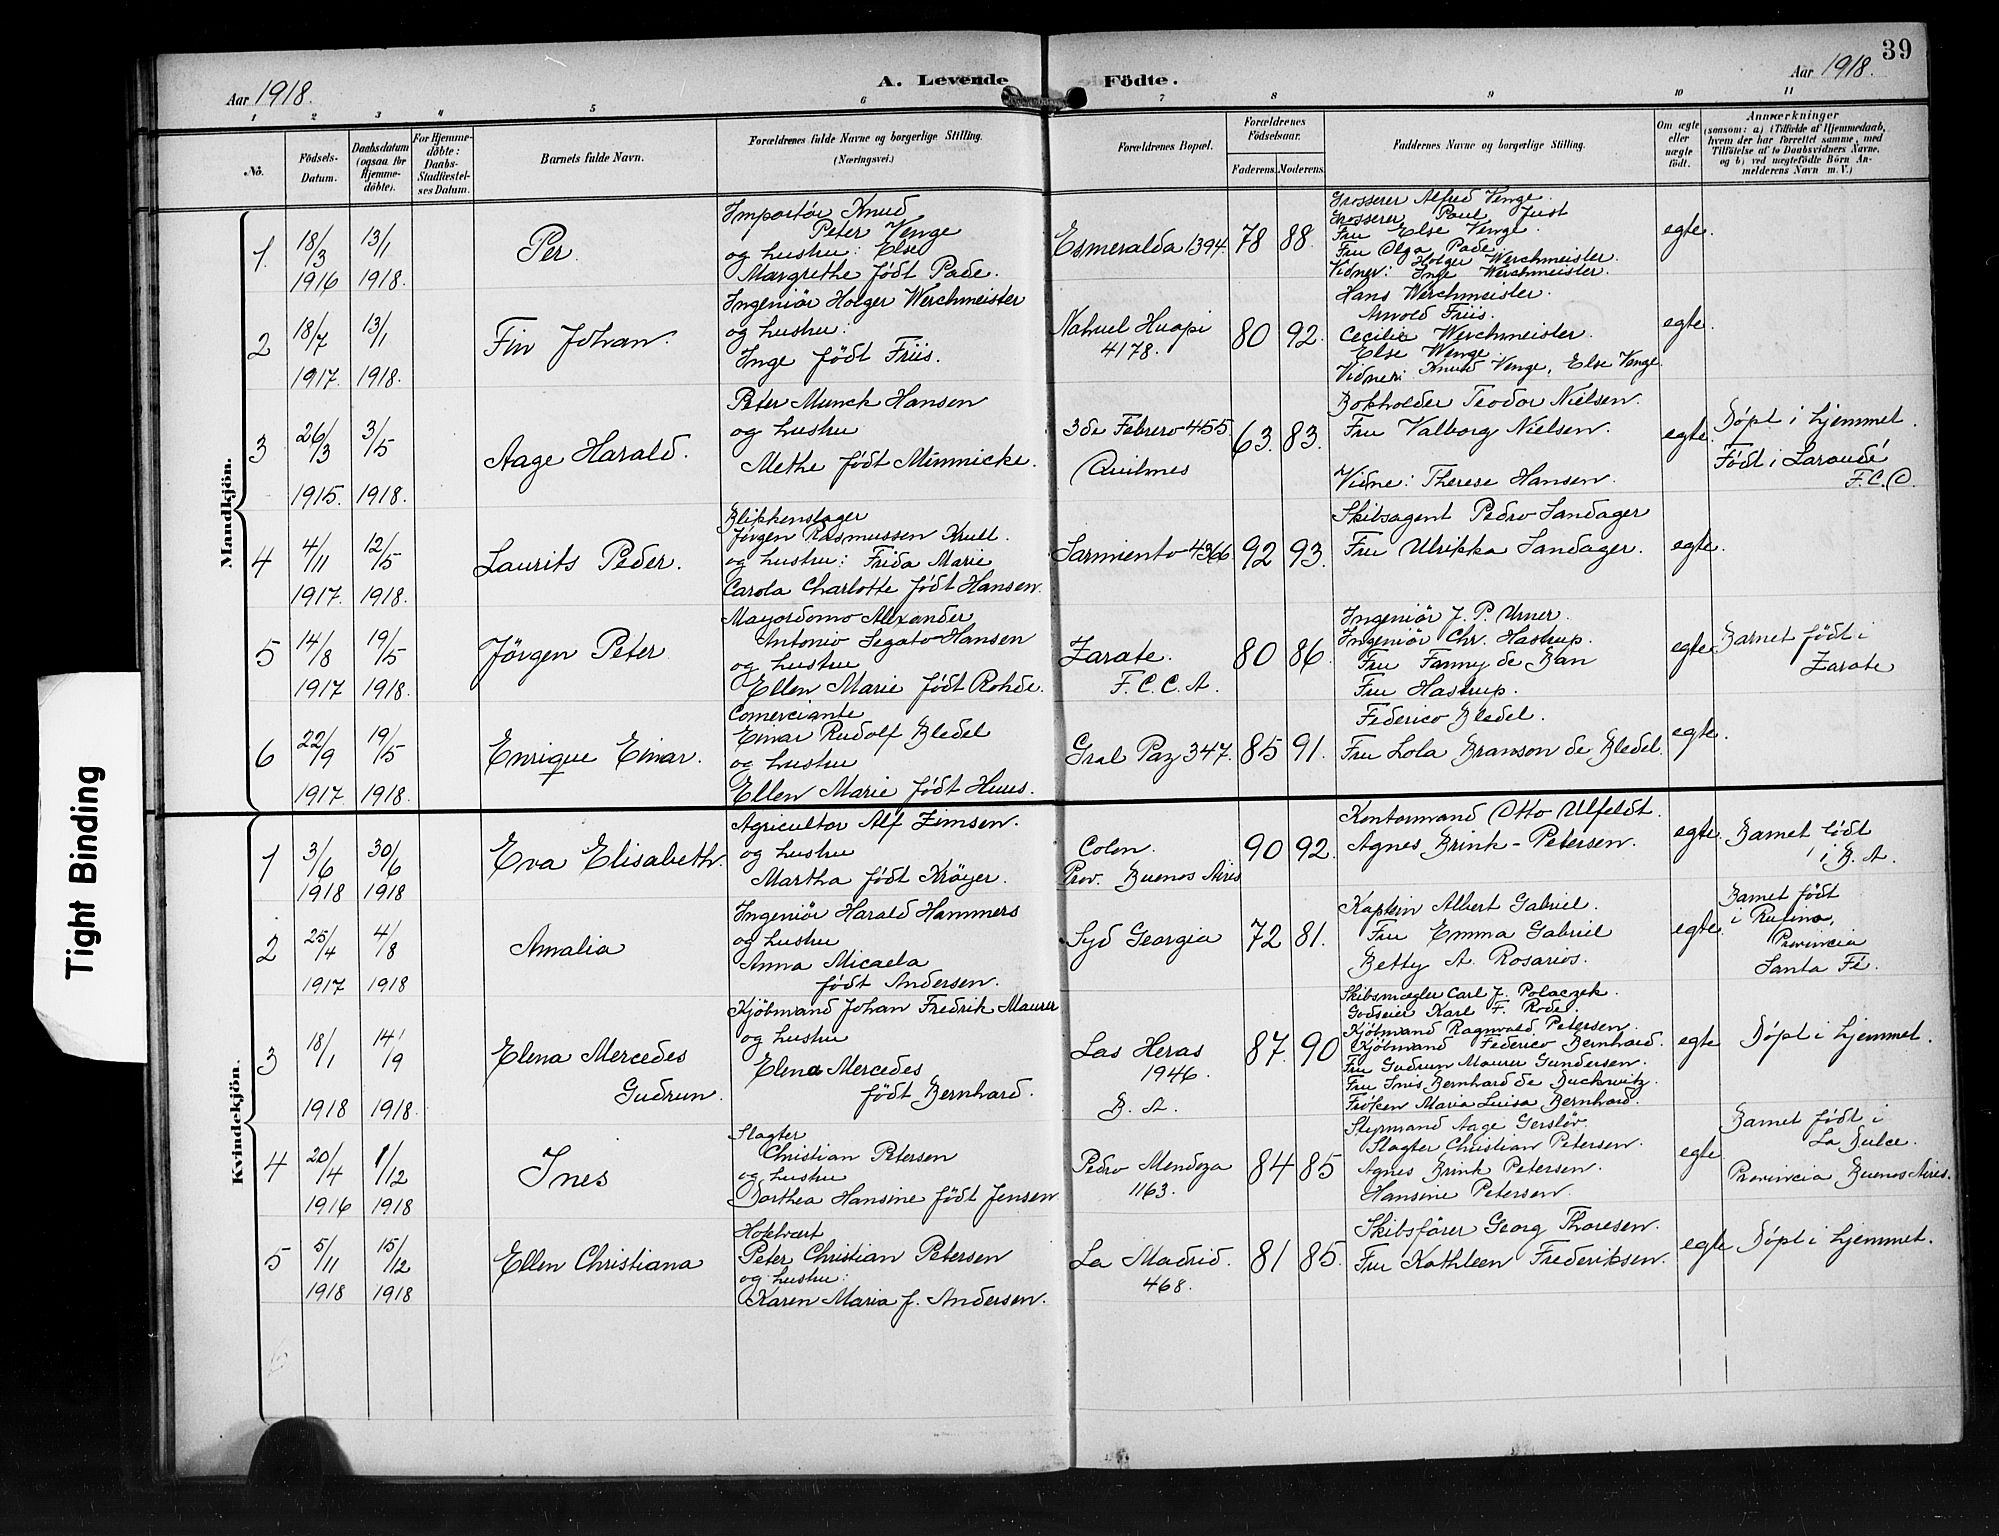 39
Aar 1918.
A. Levende
Födte.
Aar 1918.
1 2 3 4 5 6 7 8 9 10 11
No.
Födsels-
Datum.
Daabsdatum
(ogsaa for
Hjemme-
döbte).
For Hjemme-
döbte:
Daabs-
Stadfæstel-
ses Datum.
Barnets fulde Navn.
Forældrenes fulde Navne og borgerlige Stilling.
(Næringsvei.)
Forældrenes Bopæl.
Forældrenes
Födselsaar.
Faderens. Moderens.
Faddernes Navne og borgerlige Stilling.
Om ægte
eller
uægte
födt.
Anmærkninger
(saasom: a) i Tilfælde af Hjemmedaab,
hvem der har forrettet samme, med
Tilföielse af to Daabsvidners Navne,
og b) ved uægtefödte Börn An-
melderens Navn m. V.)
Mandkjön.
1.
18/3
1916
13/1
1918.
Per.
Importør Knud
Peter Venge
og hustru: Else
Margrethe født Pade.
Esmeralda 1394.
78
88.
Grosserer Alfred Venge.
Grosserer Paul Just
Fru Else Venge.
Fru Olga Pade.
Vidner: Holger Werchmeister.
Inge Werchmeister.
egte.
2
18/7
1917.
13/1
1918.
Fin Johan.
Ingeniör Holger Werchmeister
og hustru:
Inge født Friis.
Nahuel Huapi
4178.
80
92.
Hans Werchmeister.
Arvold Friis.
Cecilie Werchmeister.
Else Wenge.
Vidner: Knud Venge, Else Venge.
egte.
3
26/3
1915.
3/5
1918.
Aage Harald.
Peter Munck Hansen
og hustru
Methe født Mimmicke.
3 de Febrero 455.
Quilmes
63.
83.
Bokholder Teodor Nielsen.
Fru Valborg Nielsen.
Vidne: Therese Hansen.
egte.
Døpt i hjemmet.
Født i Laroudé
F.C.O.
4
4/11
1917.
12/5
1918.
Laurits Peder.
Blikkenslager
Jørgen Rasmussen Krull
og hustru: Frida Marie
Carola Charlotte født Hansen.
Sarmiento 4366
92
93.
Skibsagent Pedro Sandager
Fru Ulrikka Sandager.
egte.
5
14/8
1917
19/5
1918.
Jörgen Peter
Mayordomo Alexander
Antonio Segato-Hansen
og hustru
Ellen Marie født Rohde.
Zarate.
F. C. C. A.
80
86.
Ingeniør J. P. Urner.
Ingeniør Chr. Hastrup.
Fru Fanny de Ban
Fru Hastrup.
egte
Barnet født i
Zarate
6
22/9
1917.
19/5
1918.
Enrique Einar.
Comerciante
Einar Rudolf Bledel
og hustru
Ellen Marie født Huus.
Gral Paz 347.
85
91.
Federico Bledel.
Fru Lola Branson de Bledel.
egte.
Kvindekjön.
1
3/6
1918
30/6
1918
Eva Elisabeth.
Agricultor Alf Zimsen.
og hustru
Martha født Krøyer.
Colon.
Prov. Buenos Aires
90
92.
Kontormand Otto Ulfeldt.
Agnes Brink-Petersen.
egte.
Barnet født
i B. A.
2
25/4
1917
4/8
1918
Amalia
Ingeniør Harald Hammers
og hustru
Anna Micaela
født Andersen.
Syd Georgia
72
81.
Kaptein Albert Gabriel.
Fru Emma Gabriel
Betty A. Rosarios.
egte.
Barnet født
i Rufino,
Provincia
Santa Fé.
3
18/1
1918
14/9
1918.
Elena Mercedes
Gudrun.
Kjøbmand Johan Fredrik Maurer
og hustru
Elena Mercedes
født Bernhard.
Las Heras
1946.
B. A.
87.
90
Skibsmægler Carl J. Polaczek.
Godseier Karl F. Rode.
Kjøbmand Ragnvald Petersen.
Kjøbmand Federico Bernhard.
Fru Gudrun Maurer Gundersen.
Fru Inis Bernhard de Duckwitz.
Frøken Maria Luisa Bernhard.
egte
Døpt i hjemmet.
4
20/4
1916
1/12
1918
Ines
Slagter
Christian Petersen
og hustru
Dorthea Hansine født Jensen
Pedro Mendoza
1163.
84
85
Styrmand Aage Gersløv.
Slagter Christian Petersen.
Agnes Brink Petersen.
Hansine Petersen.
egte
Barnet født i
La Dulce.
Provincia Buenos Aires.
5
5/11
1918
15/12
1918
Ellen Christiana
Hotelvært
Peter Christian Petersen
og hustru:
Karen Maria f. Andersen.
La Madrid.
468.
81
85.
Skibsfører Georg Thoresen.
Fru Kathleen Frederiksen.
egte
Døpt i hjemmet.
Tight Binding